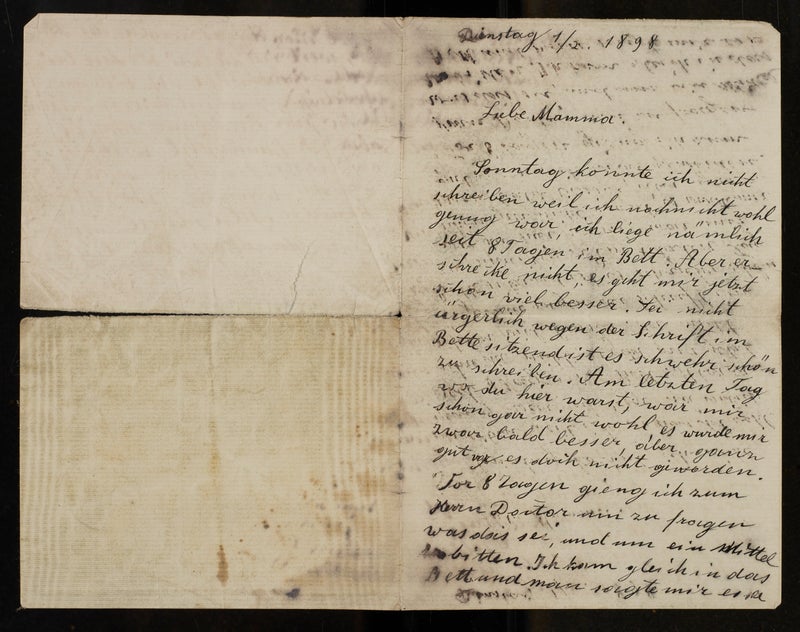 Dinstag 1/2. 1898
Liebe Mamma!
Sonntag konnte ich nicht
schreiben weil ich noch nicht wohl
genug war, ich liege nämlich
seit 8 Tagen im Bett. Aber er-
schrecke nicht, es geht mir jetzt
schon viel besser. Sei nicht
ärgerlich wegen der Schrift im
Bette sitzend ist es schwehr schön
zu schreiben. Am letzten Tag
wo du hier warst, war mir
schon gar nicht wohl es wurde mir
zwar bald besser, aber ganz
gut es doch nicht geworden.
Vor 8 Tagen gieng ich zum
Herrn Doctor um zu fragen
was das sei, und um ein Mittel
zu bitten. Ich kam gleich in das
Bett und man sagte mir es sei